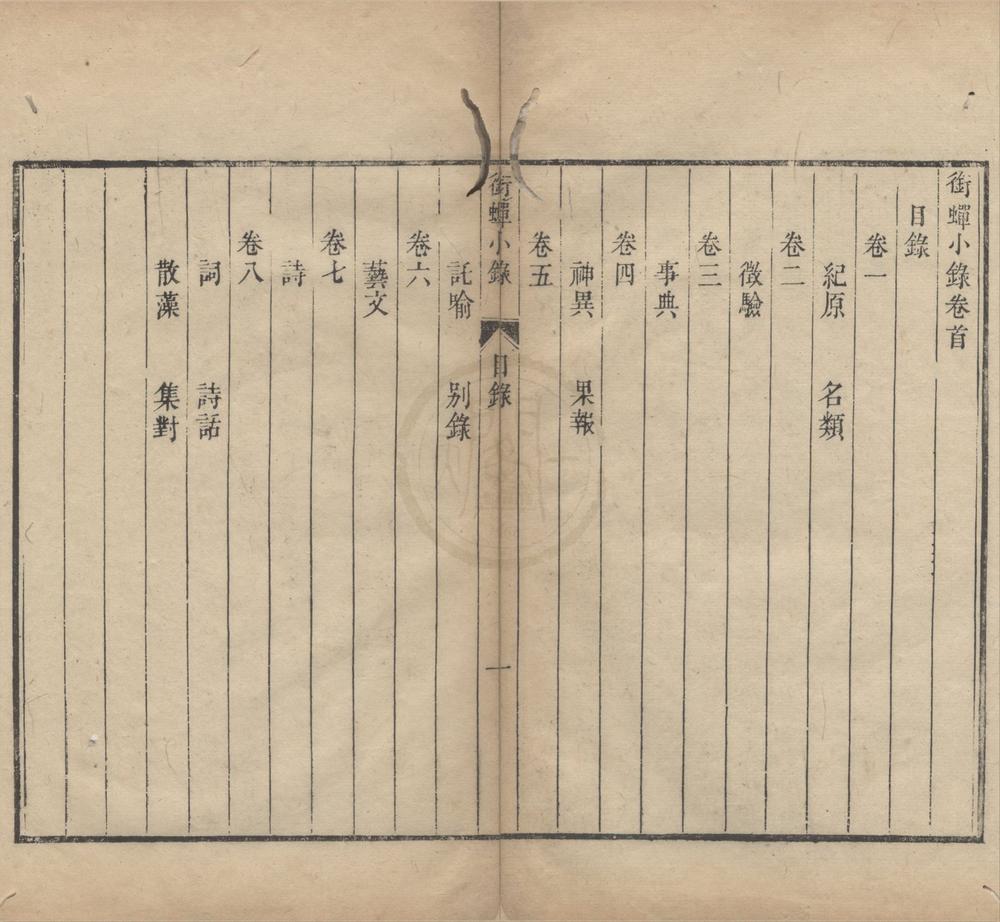 衘蟬小錄卷首
目錄
卷一
紀原 名類
卷二
徵驗
卷三
事典
卷四
神異 果報
卷五
衘蟬小錄 目錄 一
託喻 别錄
卷六
藝文
卷七
詩
卷八
詞 詩話
散藻 集對